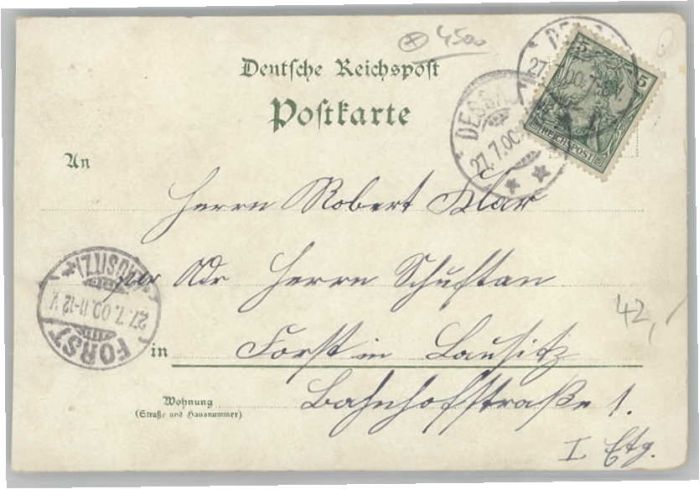 4500
Deutsche Reichspost
Postkarte
5 5
REICHSPOST
DESSAU
27.7.00.7-
DESSAU
27.7.00
An
Herrn Robert Klar
per Adr Herrn Schustan
FORST (LAUSITZ)
27.7.00.11-12 V.
in Forst in Lausitz
42,-
Wohnung
(Straße und Hausnummer)
Bahnhofstraße 1.
I. Etg.